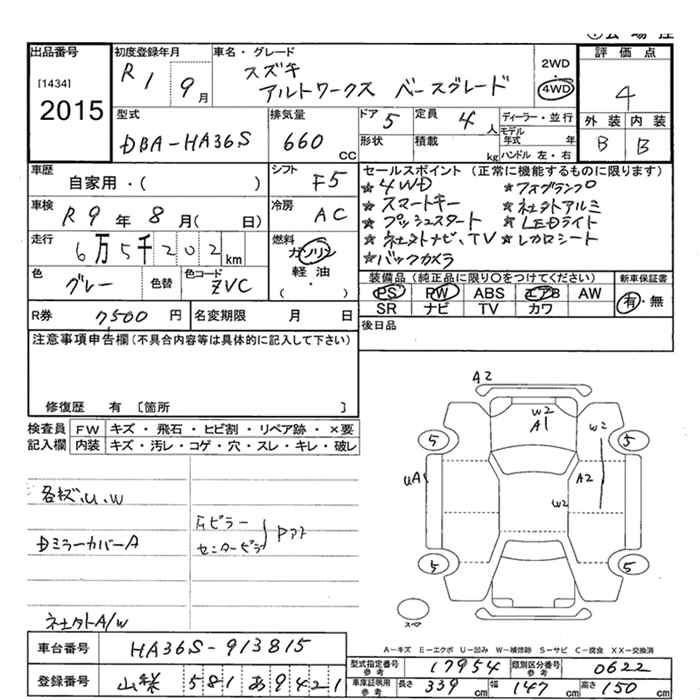 出品番号
[1434]
2015
初度登録年月
R1 9月
車名・グレード
スズキ
アルトワークス ベースグレード
2WD
・
4WD
評価点
4
外装 内装
B B
型式
DBA-HA36S
排気量
660 cc
ドア 5
定員 4人
形状
積載 kg
ディーラー・並行
モデル年式 年
ハンドル 左・右
車歴
自家用・( )
シフト
F5
車検
R9年8月( 日)
冷房
AC
走行
6万5千202km
燃料
ガソリン
軽油
( ・ )
色
グレー
色替
色コード
ZVC
R券 7,500円
名変期限 月 日
セールスポイント (正常に機能するものに限ります)
★4WD ★フォグランプ
★スマートキー ★社外アルミ
★プッシュスタート ★LEDライト
★社外ナビ、TV ★レカロシート
★バックカメラ
装備品 (純正品に限り○をつけてください)
PS PW ABS エアB AW
SR ナビ TV カワ
新車保証書
有・無
後日品
注意事項申告欄 (不具合内容等は具体的に記入して下さい)
修復歴 有 [箇所 ]
検査員記入欄
FW キズ・飛石・ヒビ割・リペア跡・×要
内装 キズ・汚レ・コゲ・穴・スレ・キレ・破レ
各キズ、U、W
Dミラーカバー A
ピラー
センターピラ
社外A/W
A2
W2
A1
W2
5
5
UA1
A2
W2
5
5
スペア
A-キズ E-エクボ U-凹み W-補修跡 S-サビ C-腐食 XX-交換済
車台番号 HA36S-913815
登録番号 山梨 581 あ 9421
型式指定番号 参考 17954
類別区分番号 参考 0622
車庫証明用 参考 長さ 339cm 幅 147cm 高さ 150cm